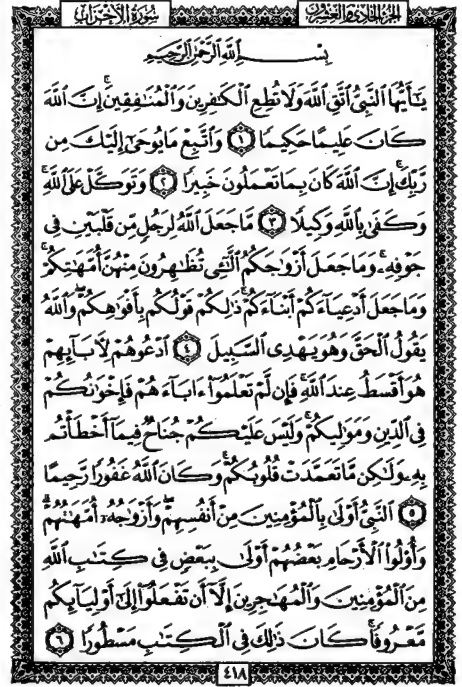 سُورَةُ الأَحْزَابِ
الجزء الحادي والعشرون
بِسْمِ ٱللَّهِ ٱلرَّحْمَٰنِ ٱلرَّحِيمِ
يَٰٓأَيُّهَا ٱلنَّبِىُّ ٱتَّقِ ٱللَّهَ وَلَا تُطِعِ ٱلْكَٰفِرِينَ وَٱلْمُنَٰفِقِينَۗ إِنَّ ٱللَّهَ
كَانَ عَلِيمًا حَكِيمًا ١ وَٱتَّبِعْ مَا يُوحَىٰٓ إِلَيْكَ مِن
رَّبِّكَۚ إِنَّ ٱللَّهَ كَانَ بِمَا تَعْمَلُونَ خَبِيرًا ٢ وَتَوَكَّلْ عَلَى ٱللَّهِۚ
وَكَفَىٰ بِٱللَّهِ وَكِيلًا ٣ مَّا جَعَلَ ٱللَّهُ لِرَجُلٍ مِّن قَلْبَيْنِ فِى
جَوْفِهِۦۚ وَمَا جَعَلَ أَزْوَٰجَكُمُ ٱلَّٰٓـِٔى تُظَٰهِرُونَ مِنْهُنَّ أُمَّهَٰتِكُمْۚ
وَمَا جَعَلَ أَدْعِيَآءَكُمْ أَبْنَآءَكُمْۚ ذَٰلِكُمْ قَوْلُكُم بِأَفْوَٰهِكُمْۖ وَٱللَّهُ
يَقُولُ ٱلْحَقَّ وَهُوَ يَهْدِى ٱلسَّبِيلَ ٤ ٱدْعُوهُمْ لِأَبَآئِهِمْ
هُوَ أَقْسَطُ عِندَ ٱللَّهِۚ فَإِن لَّمْ تَعْلَمُوٓا۟ ءَابَآءَهُمْ فَإِخْوَٰنُكُمْ
فِى ٱلدِّينِ وَمَوَٰلِيكُمْۚ وَلَيْسَ عَلَيْكُمْ جُنَاحٌ فِيمَآ أَخْطَأْتُم
بِهِۦ وَلَٰكِن مَّا تَعَمَّدَتْ قُلُوبُكُمْۚ وَكَانَ ٱللَّهُ غَفُورًا رَّحِيمًا
٥ ٱلنَّبِىُّ أَوْلَىٰ بِٱلْمُؤْمِنِينَ مِنْ أَنفُسِهِمْۖ وَأَزْوَٰجُهُۥٓ أُمَّهَٰتُهُمْۗ
وَأُو۟لُوا۟ ٱلْأَرْحَامِ بَعْضُهُمْ أَوْلَىٰ بِبَعْضٍ فِى كِتَٰبِ ٱللَّهِ
مِنَ ٱلْمُؤْمِنِينَ وَٱلْمُهَٰجِرِينَ إِلَّآ أَن تَفْعَلُوٓا۟ إِلَىٰٓ أَوْلِيَآئِكُم
مَّعْرُوفًاۚ كَانَ ذَٰلِكَ فِى ٱلْكِتَٰبِ مَسْطُورًا ٦
٤١٨